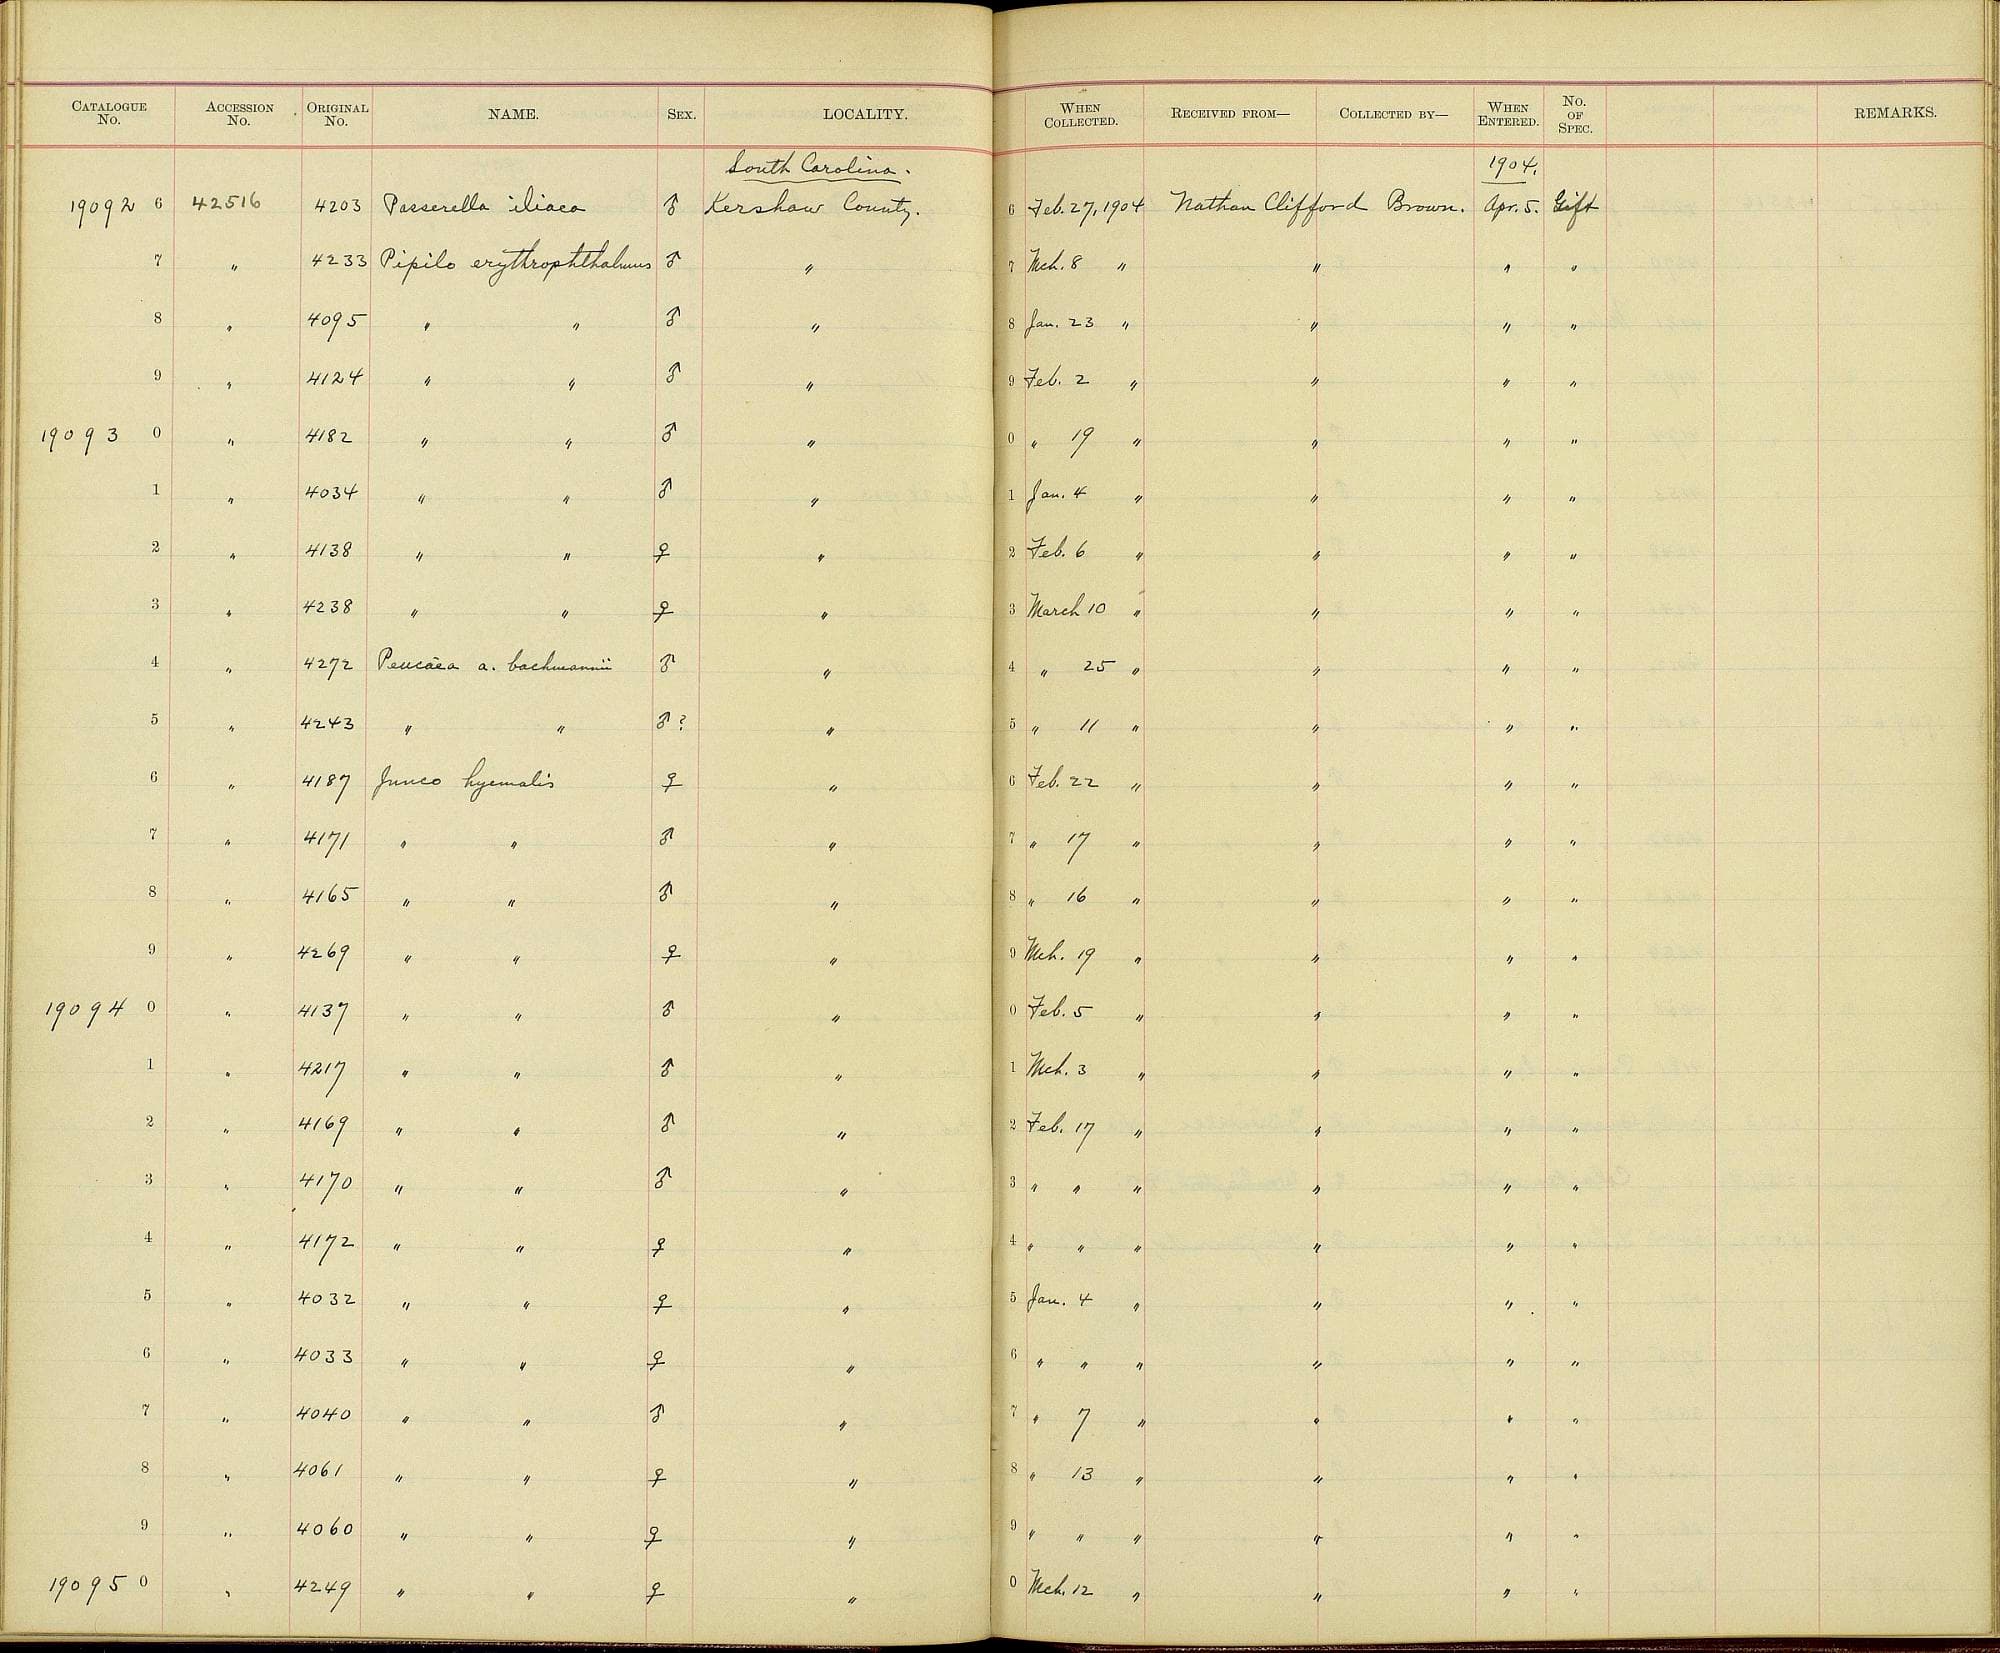 CATALOGUE No. ACCESSION No. ORIGINAL No. NAME. SEX. LOCALITY. WHEN COLLECTED. RECEIVED FROM— COLLECTED BY— WHEN ENTERED. No. OF SPEC. REMARKS.
South Carolina. 1904.
19092 6 42516 4203 Passerella iliaca ♂ Kershaw County. 6 Feb. 27, 1904 Nathan Clifford Brown. Apr. 5. Gift
7 " 4233 Pipilo erythrophthalmus ♂ " 7 Mch. 8 " " " "
8 " 4095 " " ♂ " 8 Jan. 23 " " " "
9 " 4124 " " ♂ " 9 Feb. 2 " " " "
19093 0 " 4182 " " ♂ " 0 " 19 " " " "
1 " 4034 " " ♂ " 1 Jan. 4 " " " "
2 " 4138 " " ♀ " 2 Feb. 6 " " " "
3 " 4238 " " ♀ " 3 March 10 " " " "
4 " 4272 Peucæa a. bachmannii ♂ " 4 " 25 " " " "
5 " 4243 " " ♂? " 5 " 11 " " " "
6 " 4187 Junco hyemalis ♀ " 6 Feb. 22 " " " "
7 " 4171 " " ♂ " 7 " 17 " " " "
8 " 4165 " " ♂ " 8 " 16 " " " "
9 " 4269 " " ♀ " 9 Mch. 19 " " " "
19094 0 " 4137 " " ♂ " 0 Feb. 5 " " " "
1 " 4217 " " ♂ " 1 Mch. 3 " " " "
2 " 4169 " " ♂ " 2 Feb. 17 " " " "
3 " 4170 " " ♂ " 3 " " " " " "
4 " 4172 " " ♀ " 4 " " " " " "
5 " 4032 " " ♀ " 5 Jan. 4 " " " "
6 " 4033 " " ♀ " 6 " " " " " "
7 " 4040 " " ♂ " 7 " 7 " " " "
8 " 4061 " " ♀ " 8 " 13 " " " "
9 " 4060 " " ♀ " 9 " " " " " "
19095 0 " 4249 " " ♀ " 0 Mch. 12 " " " "